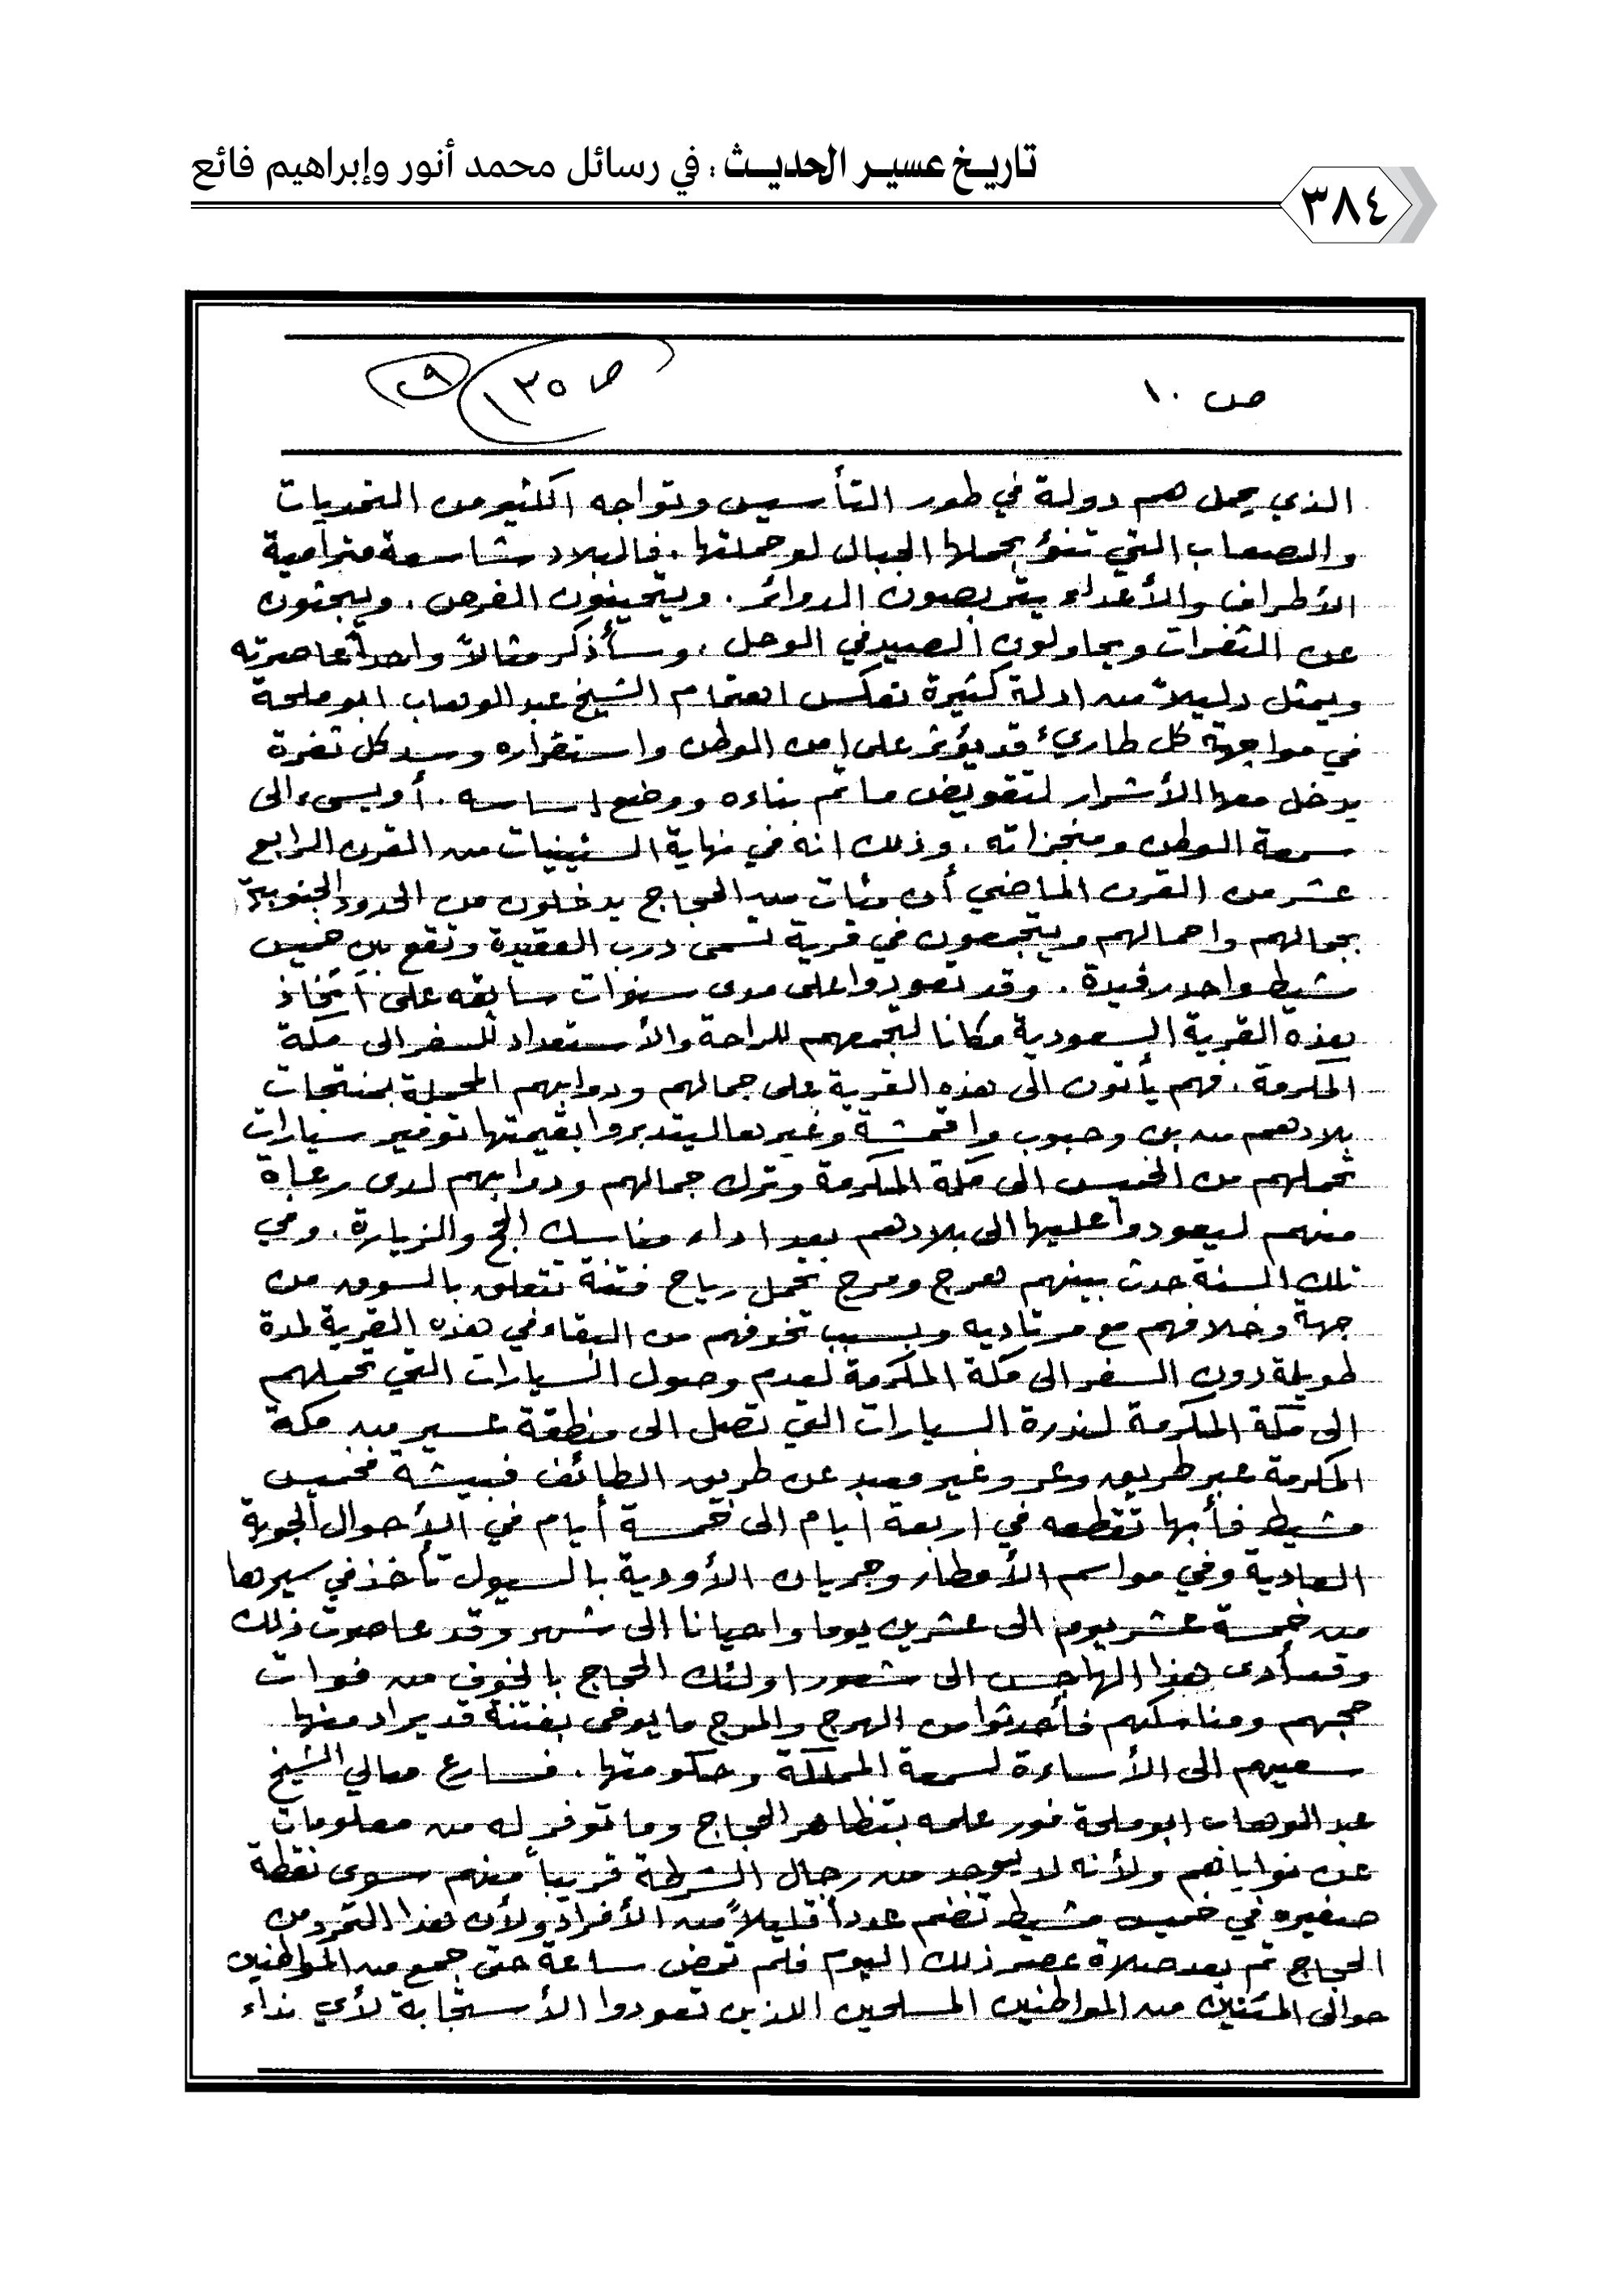 تاريخ عسير الحديث : في رسائل محمد أنور وإبراهيم فائع
٣٨٤
ص ١٠
ص ١٣٥
الذي يحمل هم دولة في طور التأسيس وتواجه الكثير من التحديات
والصعاب التي تنوؤ بحملها الجبال لو حملتها . فالبلاد شاسعة مترامية
الأطراف والأعداء يتربصون الدوائر . ويتحينون الفرص . ويبحثون
عن الثغرات ويحاولون الصيد في الوحل . وسأذكر مثالاً واحداً عاصرته
ويمثل دليلاً من ادلة كثيرة تعكس اهتمام الشيخ عبد الوهاب ابو ملحة
في مواجهة كل طاريء قد يؤثر على امن الوطن واستقراره وسد كل ثغرة
يدخل معها الأشرار لتقويض ما تم بناءه ووضع اساسه . أو يسيء الى
سمعة الوطن ومنجزاته . وذلك انه في نهاية الستينيات من القرن الرابع
عشر من القرن الماضي أن مئات من الحجاج يدخلون من الحدود الجنوبية
بجمالهم واحمالهم ويتجمعون في قرية تسمى درب العقيدة وتقع بين خميس
مشيط واحد رفيدة . وقد تعودوا على مدى سنوات سابقه على اتخاذ
هذه القرية السعودية مكانا لتجمعهم للراحة والأستعداد للسفر الى مكة
المكرمة . فهم يأتون الى هذه القرية على جمالهم ودوابهم المحملة بمنتجات
بلادهم من بن وحبوب واقمشة وغيرها ليتدبروا بقيمتها توفير سيارات
تحملهم من الخميس الى مكة المكرمة وترك جمالهم ودوابهم لدى رعاة
منهم ليعودوا عليها الى بلادهم بعد اداء مناسك الحج والزيارة . وفي
تلك السنة حدث بينهم هرج ومرج تحمل رياح فتنة تتعلق بالسوق من
جهة وخلافهم مع مرتاديه وبسبب تخوفهم من البقاء في هذه القرية لمدة
طويلة دون السفر الى مكة المكرمة لعدم وصول السيارات التي تحملهم
الى مكة المكرمة لندرة السيارات التي تصل الى منطقة عسير من مكة
المكرمة عبر طريق وعر وغير معبد عن طريق الطائف فبيشة فخميس
مشيط فأبها تقطعه في اربعة ايام الى خمسة أيام في الأحوال الجوية
العادية وفي مواسم الأمطار وجريان الأودية بالسيول تأخذ في سيرها
من خمسة عشر يوم الى عشرين يوما واحيانا الى شهر وقد عاصرت ذلك
وقد أدى هذا الهاجس الى شعور اولئك الحجاج بالخوف من فوات
حجهم ومناسكهم فأحدثوا من الهرج والمرج ما يوحي بفتنة قد يراد منها
سعيهم الى الأساءة لسمعة المملكة وحكومتها . فسارع معالي الشيخ
عبد الوهاب ابو ملحة فور علمه بتظاهر الحجاج وما توفر له من معلومات
عن نواياهم ولأنه لا يوجد من رجال الشرطة قريباً منهم سوى نقطة
صغيره في خميس مشيط تضم عدداً قليلاً من الأفراد ولأن هذا التمرد من
الحجاج تم بعد صلاة عصر ذلك اليوم فلم تمض ساعة حتى جمع من المواطنين
حوالى المئتين من المواطنين المسلحين الذين تعودوا الأستجابة لأي نداء